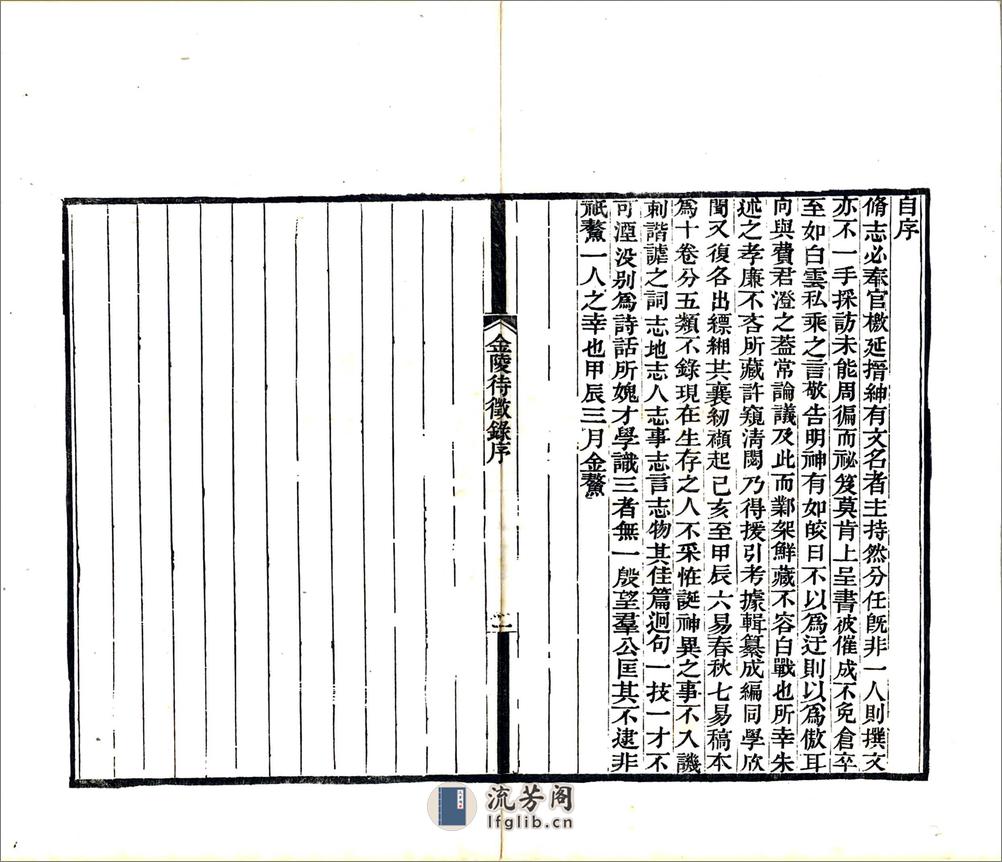 自序
脩志必奉官檄延搢紳有文名者主持然分任旣非一人則撰文
亦不一手採訪未能周徧而祕笈莫肯上呈書被催成不免倉卒
至如白雲私乘之言敬告明神有如皎日不以爲迂則以爲傲耳
向與費君澄之葢常論議及此而鄴架鮮藏不容白戰也所幸朱
述之孝廉不吝所藏許窺淸閟乃得援引考據輯纂成編同學欣
聞又復各出縹緗共襄紉纈起己亥至甲辰六易春秋七易稿本
爲十卷分五類不錄現在生存之人不采恠誕神異之事不入譏
刺諧謔之詞志地志人志事志言志物其佳篇迥句一技一才不
可湮没别爲詩話所媿才學識三者無一殷望羣公匡其不逮非
祇鰲一人之幸也甲辰三月金鰲
金陵待徵錄序
二
流芳阁
lfglib.cn